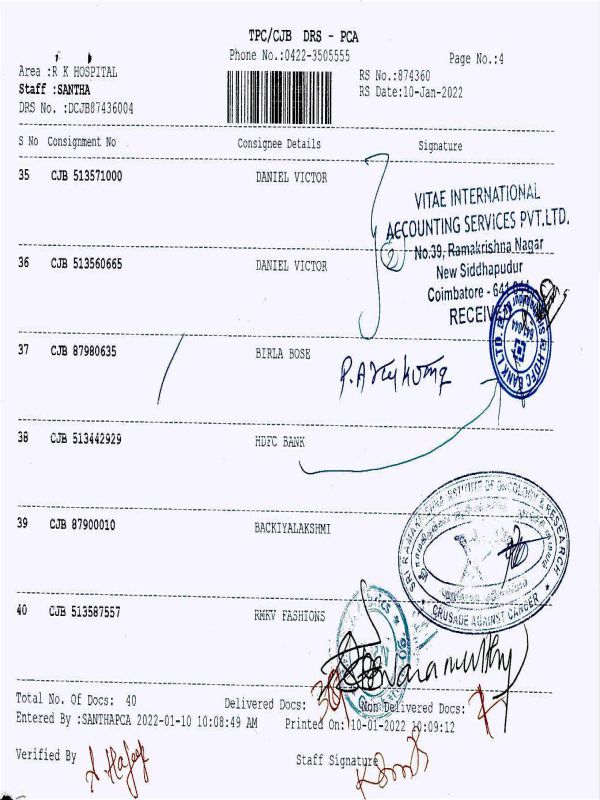 TPC/CJB DRS - PCA
Phone No.:0422-3505555
Page No.:4
Area :R K HOSPITAL
Staff :SANTHA
DRS No. :DCJB87436004
RS No.:874360
RS Date:10-Jan-2022
S No Consignment No Consignee Details Signature
35 CJB 513571000 DANIEL VICTOR
VITAE INTERNATIONAL
ACCOUNTING SERVICES PVT.LTD.
No.39, Ramakrishna Nagar
New Siddhapudur
Coimbatore - 641
RECEIV
36 CJB 513560665 DANIEL VICTOR
2
HDFC BANK LTD.
37 CJB 87980635 BIRLA BOSE
38 CJB 513442929 HDFC BANK
39 CJB 87900010 BACKIYALAKSHMI
SRI RAMAKRISHNA INSTITUTE OF ONCOLOGY & RESEARCH
CRUSADE AGAINST CANCER
40 CJB 513587557 RMKV FASHIONS
Total No. Of Docs: 40 Delivered Docs: Non Delivered Docs:
Entered By :SANTHAPCA 2022-01-10 10:08:49 AM Printed On: 10-01-2022 10:09:12
Verified By Staff Signature